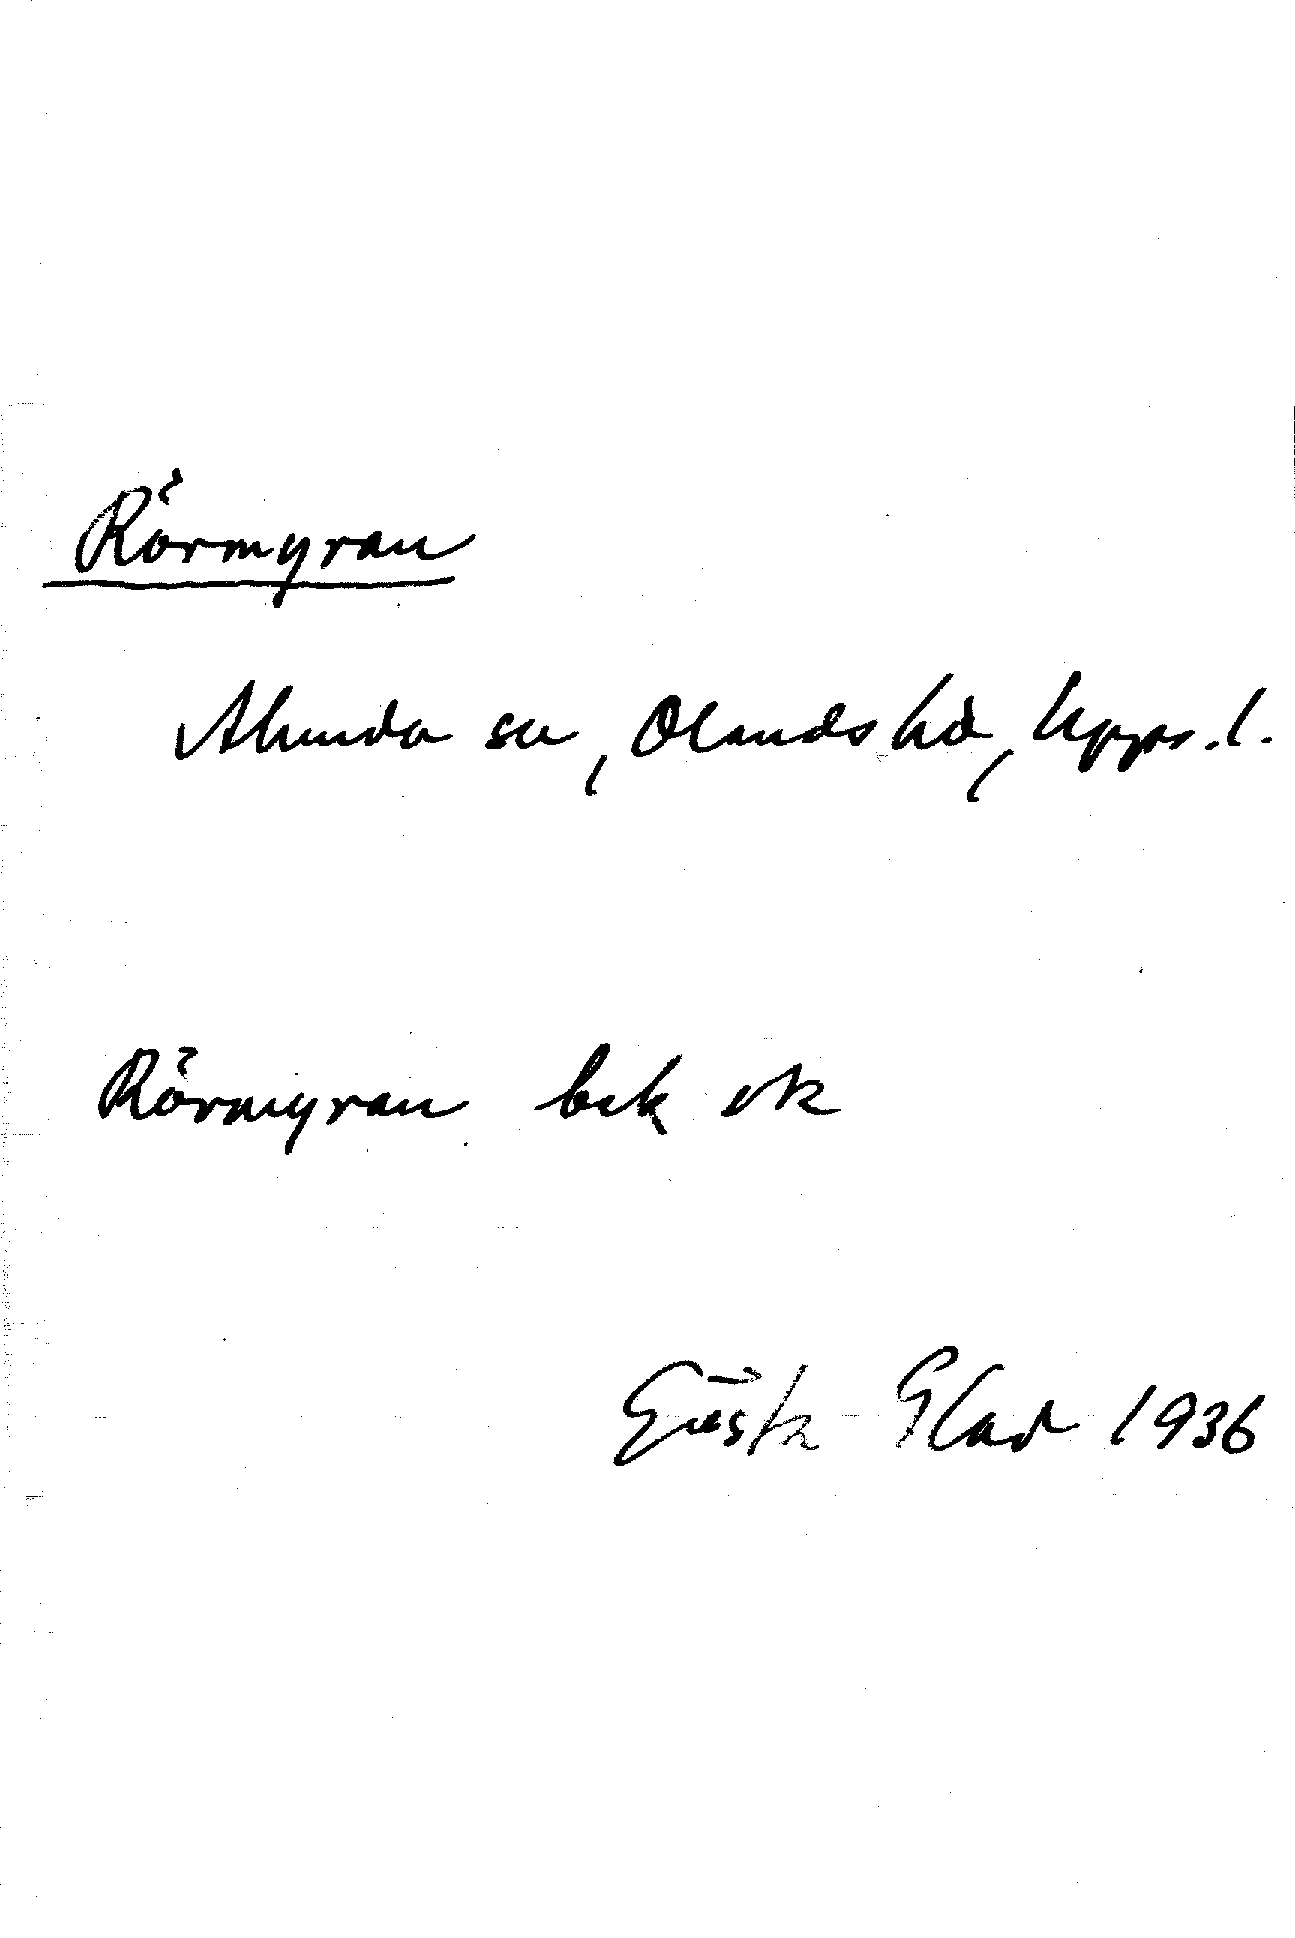 Rörmyran
Alunda sn, Olands hd, Upps. l.
Rörmyran bek ek
Gösta Glad 1936